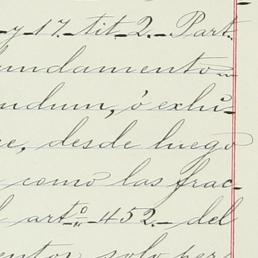 y 17. tit 2. Part.
undamento
endum, ó exhi-
ce, desde luego
como las frac-
l art.º 452. del
entor solo per